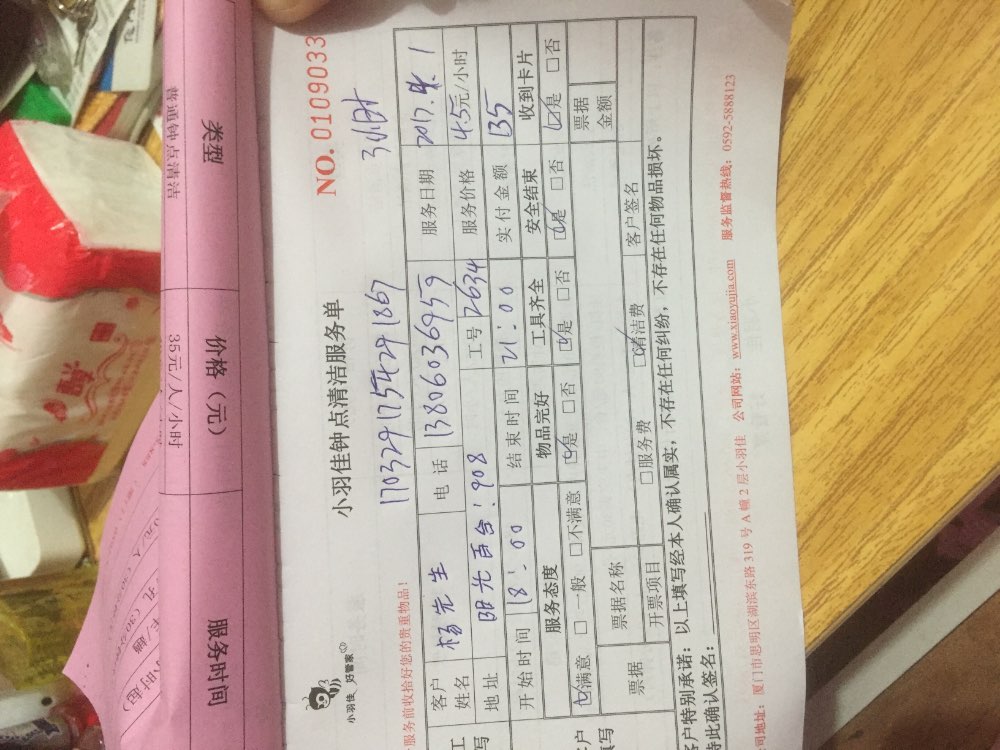 类型
价格（元）
服务时间
普通钟点清洁
35元/人/小时
NO. 0109033
小羽佳 好管家
小羽佳钟点清洁服务单
服务前收拾好您的贵重物品！
1703291754241867
3小时
客户姓名 杨先生 电话 13806036959 服务日期 2017.4.1
地址 阳光百合：908 工号 2634 服务价格 45元/小时
开始时间 18：00 结束时间 21：00 实付金额 135
服务态度 物品完好 工具齐全 安全结束 收到卡片
☑满意 □一般 □不满意 ☑是 □否 ☑是 □否 ☑是 □否 ☑是 □否
票据 票据名称 票据金额
开票项目 □服务费 ☑清洁费 客户签名
客户特别承诺：以上填写经本人确认属实，不存在任何纠纷，不存在任何物品损坏。
特此确认签名：
公司地址：厦门市思明区湖滨东路319号A幢2层小羽佳 公司网站：www.xiaoyujia.com 服务监督热线：0592-5888123